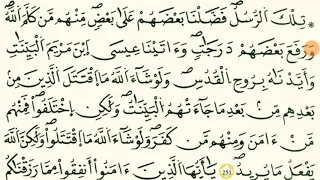 تِلْكَ اَلرُّسُلُ فَضَّلْنَا بَعْضَهُمْ عَلَىٰ بَعْضٍ مِّنْهُم مَّن كَلَّمَ اَللَّهُ
وَرَفَعَ بَعْضَهُمْ دَرَجَٰتٍ وَءَاتَيْنَا عِيسَى اَبْنَ مَرْيَمَ اَلْبَيِّنَٰتِ
وَأَيَّدْنَٰهُ بِرُوحِ اِلْقُدُسِ وَلَوْ شَآءَ اَللَّهُ مَا اَقْتَتَلَ اَلذِينَ مِنۢ
بَعْدِهِم مِّنۢ بَعْدِ مَا جَآءَتْهُمُ اُلْبَيِّنَٰتُ وَلَٰكِنِ اِخْتَلَفُواْ فَمِنْهُم
مَّنْ ءَامَنَ وَمِنْهُم مَّن كَفَرَ وَلَوْ شَآءَ اَللَّهُ مَا اَقْتَتَلُواْ وَلَٰكِنَّ اَللَّهَ
يَفْعَلُ مَا يُرِيدُ 251 يَٰٓأَيُّهَا اَلذِينَ ءَامَنُواْ أَنفِقُواْ مِمَّا رَزَقْنَٰكُم